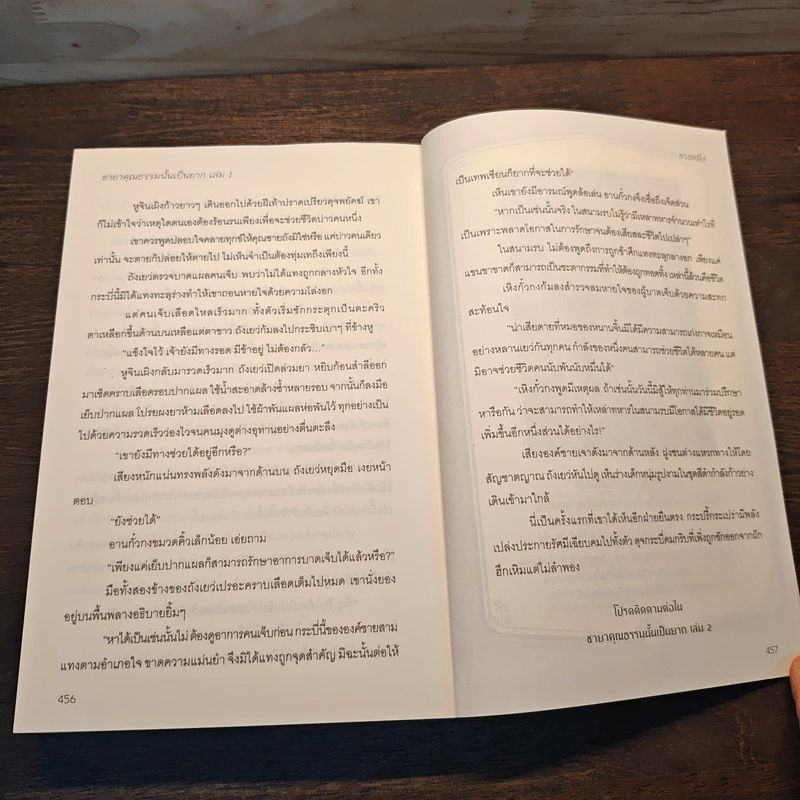 ชายาคุณธรรมนั้นเป็นยาก เล่ม 1
หูจินเผิงก้าวยาวๆ เดินออกไปด้วยฝีเท้าปราดเปรียวดุจพยัคฆ์ เขา
ก็ไม่เข้าใจว่าเหตุใดตนเองต้องร้อนรนเพียงเพื่อจะช่วยชีวิตบ่าวคนหนึ่ง
เขาควรพูดปลอบใจคลายทุกข์ให้คุณชายถังมิใช่หรือ แค่บ่าวคนเดียว
เท่านั้น จะตายก็ปล่อยให้ตายไป ไม่เห็นจำเป็นต้องทุ่มเทถึงเพียงนี้
ถังเยว่ตรวจบาดแผลคนเจ็บ พบว่าไม่ได้แทงถูกกลางหัวใจ อีกทั้ง
กระบี่นี้มิได้แทงทะลุร่างทำให้เขาถอนหายใจด้วยความโล่งอก
แต่คนเจ็บเลือดไหลเร็วมาก ทั้งตัวเริ่มชักกระตุกเป็นตะคริว
ตาเหลือกขึ้นด้านบนเหลือแต่ตาขาว ถังเยว่ก้มลงไปกระซิบเบาๆ ที่ข้างหู
“แข็งใจไว้ เจ้ายังมีทางรอด มีข้าอยู่ ไม่ต้องกลัว...”
หูจินเผิงกลับมารวดเร็วมาก ถังเยว่เปิดล่วมยา หยิบก้อนสำลีออก
มาเช็ดคราบเลือดรอบปากแผล ใช้น้ำสะอาดล้างซ้ำหลายรอบ จากนั้นก็ลงมือ
เย็บปากแผล โปรยผงยาห้ามเลือดลงไป ใช้ผ้าพันแผลห่อพันไว้ ทุกอย่างเป็น
ไปด้วยความรวดเร็วว่องไวจนคนมุงดูต่างอุทานอย่างตื่นตะลึง
“เขายังมีทางช่วยได้อยู่อีกหรือ?”
เสียงหนักแน่นทรงพลังดังมาจากด้านบน ถังเยว่หยุดมือ เงยหน้า
ตอบ
“ยังช่วยได้”
อานกั๋วกงขมวดคิ้วเล็กน้อย เอ่ยถาม
“เพียงแค่เย็บปากแผลก็สามารถรักษาอาการบาดเจ็บได้แล้วหรือ?”
มือทั้งสองข้างของถังเยว่เปรอะคราบเลือดเต็มไปหมด เขานั่งยอง
อยู่บนพื้นพลางอธิบายยิ้มๆ
“หาได้เป็นเช่นนั้นไม่ ต้องดูอาการคนเจ็บก่อน กระบี่นี้ขององค์ชายสาม
แทงตามอำเภอใจ ขาดความแม่นยำ จึงมิได้แทงถูกจุดสำคัญ มิฉะนั้นต่อให้
456
ชวงหมิง
เป็นเทพเซียนก็ยากที่จะช่วยได้”
เห็นเขายังมีอารมณ์พูดล้อเล่น อานกั๋วกงจึงเชื่อถึงเจ็ดส่วน
“หากเป็นเช่นนั้นจริง ในสนามรบไม่รู้ว่ามีเหล่าทหารจำนวนเท่าไรที่
เป็นเพราะพลาดโอกาสในการรักษาจนต้องเสียสละชีวิตไปเปล่าๆ”
ในสนามรบ ไม่ต้องพูดถึงการถูกข้าศึกแทงทะลุกลางอก เพียงแค่
แขนขาขาดก็สามารถเป็นชะตากรรมที่ทำให้ต้องถูกทอดทิ้ง เหล่านี้ล้วนคือชีวิต
เหิงกั๋วกงก้มลงสำรวจลมหายใจของผู้บาดเจ็บด้วยความสะทก
สะท้อนใจ
“น่าเสียดายที่หมอของหนานจิ้นมิได้มีความสามารถเก่งกาจเหมือน
อย่างหลานเยว่กันทุกคน กำลังของหนึ่งคนสามารถช่วยชีวิตได้หลายคน แต่
มิอาจช่วยชีวิตคนนับพันนับหมื่นได้”
“เหิงกั๋วกงพูดมีเหตุผล ถ้าเช่นนั้นวันนี้มิสู้ให้ทุกท่านมาร่วมปรึกษา
หารือกัน ว่าจะสามารถทำให้เหล่าทหารในสนามรบมีโอกาสได้มีชีวิตอยู่รอด
เพิ่มขึ้นอีกหนึ่งส่วนได้อย่างไร!”
เสียงองค์ชายเจาดังมาจากด้านหลัง ฝูงชนต่างแหวกทางให้โดย
สัญชาตญาณ ถังเยว่หันไปดู เห็นร่างเด็กหนุ่มรูปงามในชุดสีดำกำลังก้าวย่าง
เดินเข้ามาใกล้
นี่เป็นครั้งแรกที่เขาได้เห็นอีกฝ่ายยืนตรง กระปรี้กระเปร่ามีพลัง
เปล่งประกายรัศมีเฉียบคมไปทั้งตัว ดุจกระบี่คมกริบที่เพิ่งถูกชักออกจากฝัก
ฮึกเหิมแต่ไม่ลำพอง
โปรดติดตามต่อใน
ชายาคุณธรรมนั้นเป็นยาก เล่ม 2
457